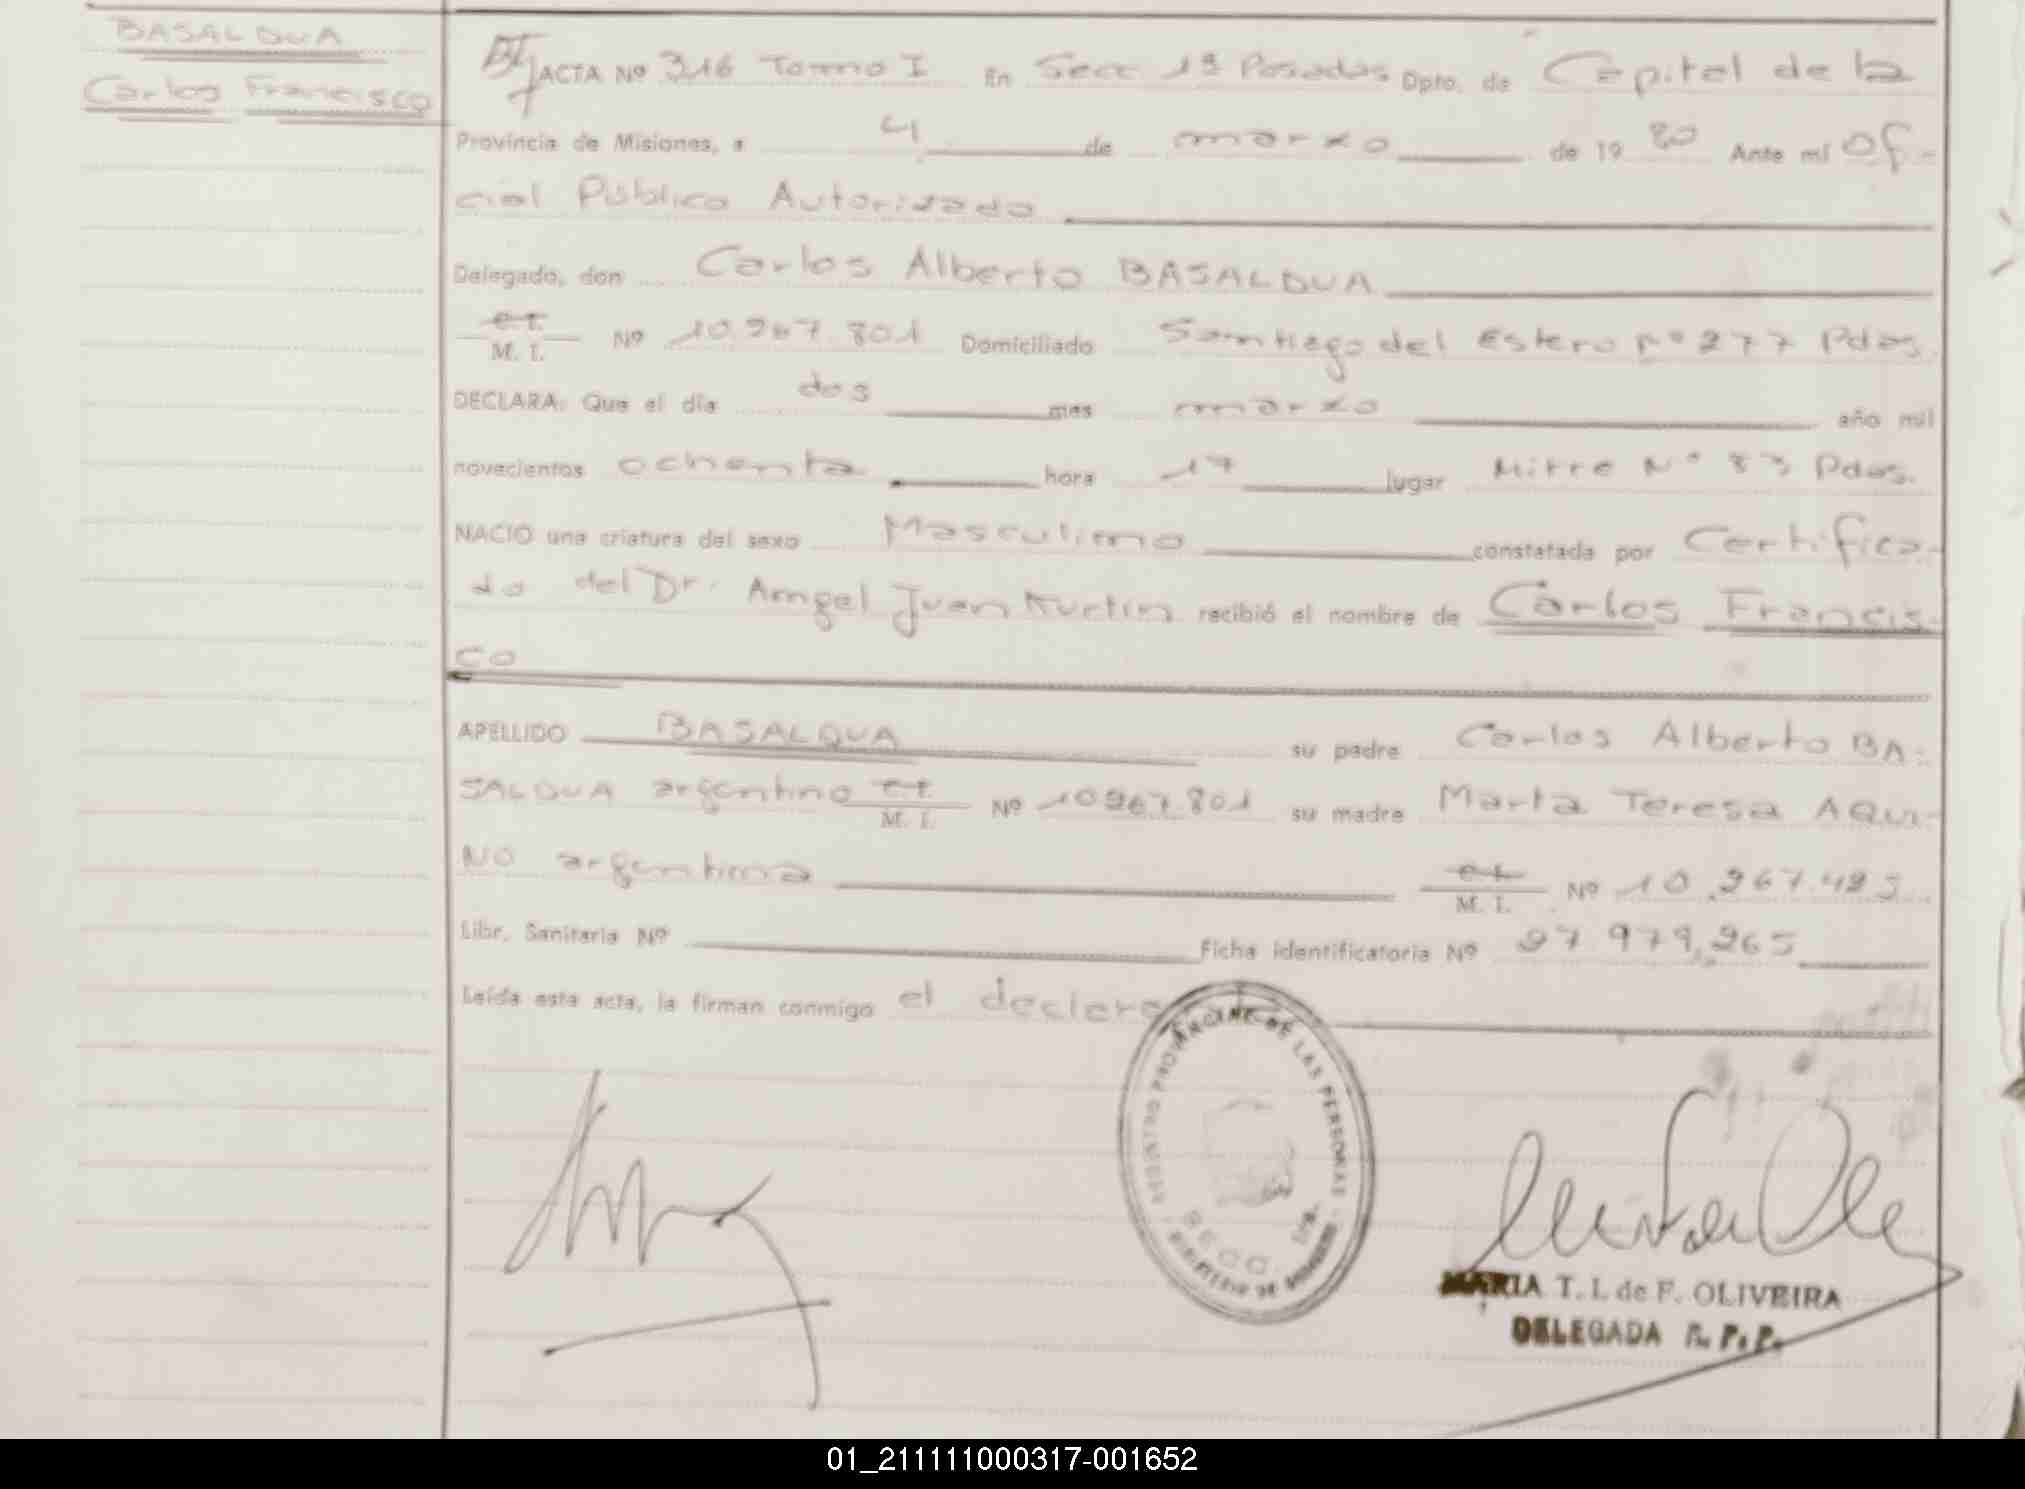 BASALDUA
Carlos Francisco
ACTA Nº 316 Tomo I En Secc 1ª Posadas Dpto. de Capital de la
Provincia de Misiones, a 4 de marzo de 1980 Ante mí Ofi-
cial Público Autorizado
Delegado, don Carlos Alberto BASALDUA
C.I. M. I. Nº 10.267.801 Domiciliado Santiago del Estero Nº 277 Pdas.
DECLARA: Que el día dos mes marzo año mil
novecientos ochenta hora 17 lugar Mitre Nº 83 Pdas.
NACIO una criatura del sexo Masculino constatada por Certifica-
do del Dr. Angel Juan recibió el nombre de Carlos Francis-
co
APELLIDO BASALDUA su padre Carlos Alberto BA-
SALDUA argentino C.I. M. I. Nº 10267.801 su madre Marta Teresa AQUI-
NO argentina C.I. M. I. Nº 10.267.425
Libr. Sanitaria Nº Ficha identificatoria Nº 27 979.265
Leída esta acta, la firman conmigo el declara
REGISTRO PROVINCIAL DE LAS PERSONAS
SECC.
MINISTERIO DE GOBIERNO
MARIA T. I. de F. OLIVEIRA
DELEGADA R. P. P.
01_211111000317-001652